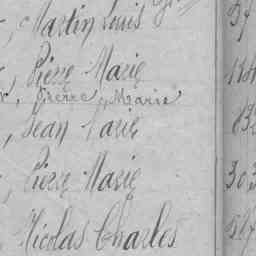 , Martin Louis
, Pierre Marie
, Pierre, Marie
, Jean Marie
, Pierre Marie
, Nicolas Charles